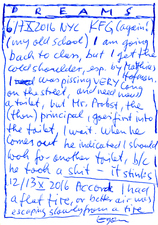 DREAMS
6/7 X 2016 NYC KFG (again!
(my old school) I am going
back to class, but I got the
cold shoulder, esp. by
I was pissing very long
on the street, and need
a toilet, but Mr. Probst, the
(then) principal goes first into
the toilet, I wait. When he
comes out he indicated I should
look for another toilet, b/c
he took a shit – it stinks
12/13 X 2016 Accord I had
a flat tire, or better air was
escaping slowly from a tire